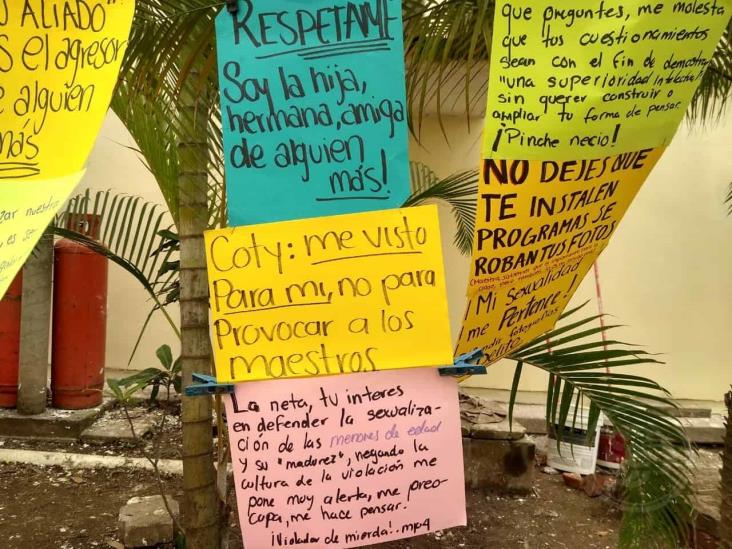 ALIADO"
s el agresor
e alguien
más
zar nuestro
RESPETAME
Soy la hija,
hermana, amiga
de alguien
más!
Coty: me visto
Para mi, no para
Provocar a los
maestros
La neta, tu interes
en defender la sexualiza-
ción de las menores de edad
y su "madurez", negando la
cultura de la violación me
pone muy alerta, me preo-
cupa, me hace pensar.
¡Violador de mierda!.mp4
que preguntes, me molesta
que tus cuestionamientos
sean con el fin de demostrar
"una superioridad intelectual"
sin querer construir o
ampliar tu forma de pensar.
¡Pinche necio!
NO DEJES QUE
TE INSTALEN
PROGRAMAS SE
ROBAN TUS FOTOS
¡Mi Sexualidad
me Pertence!